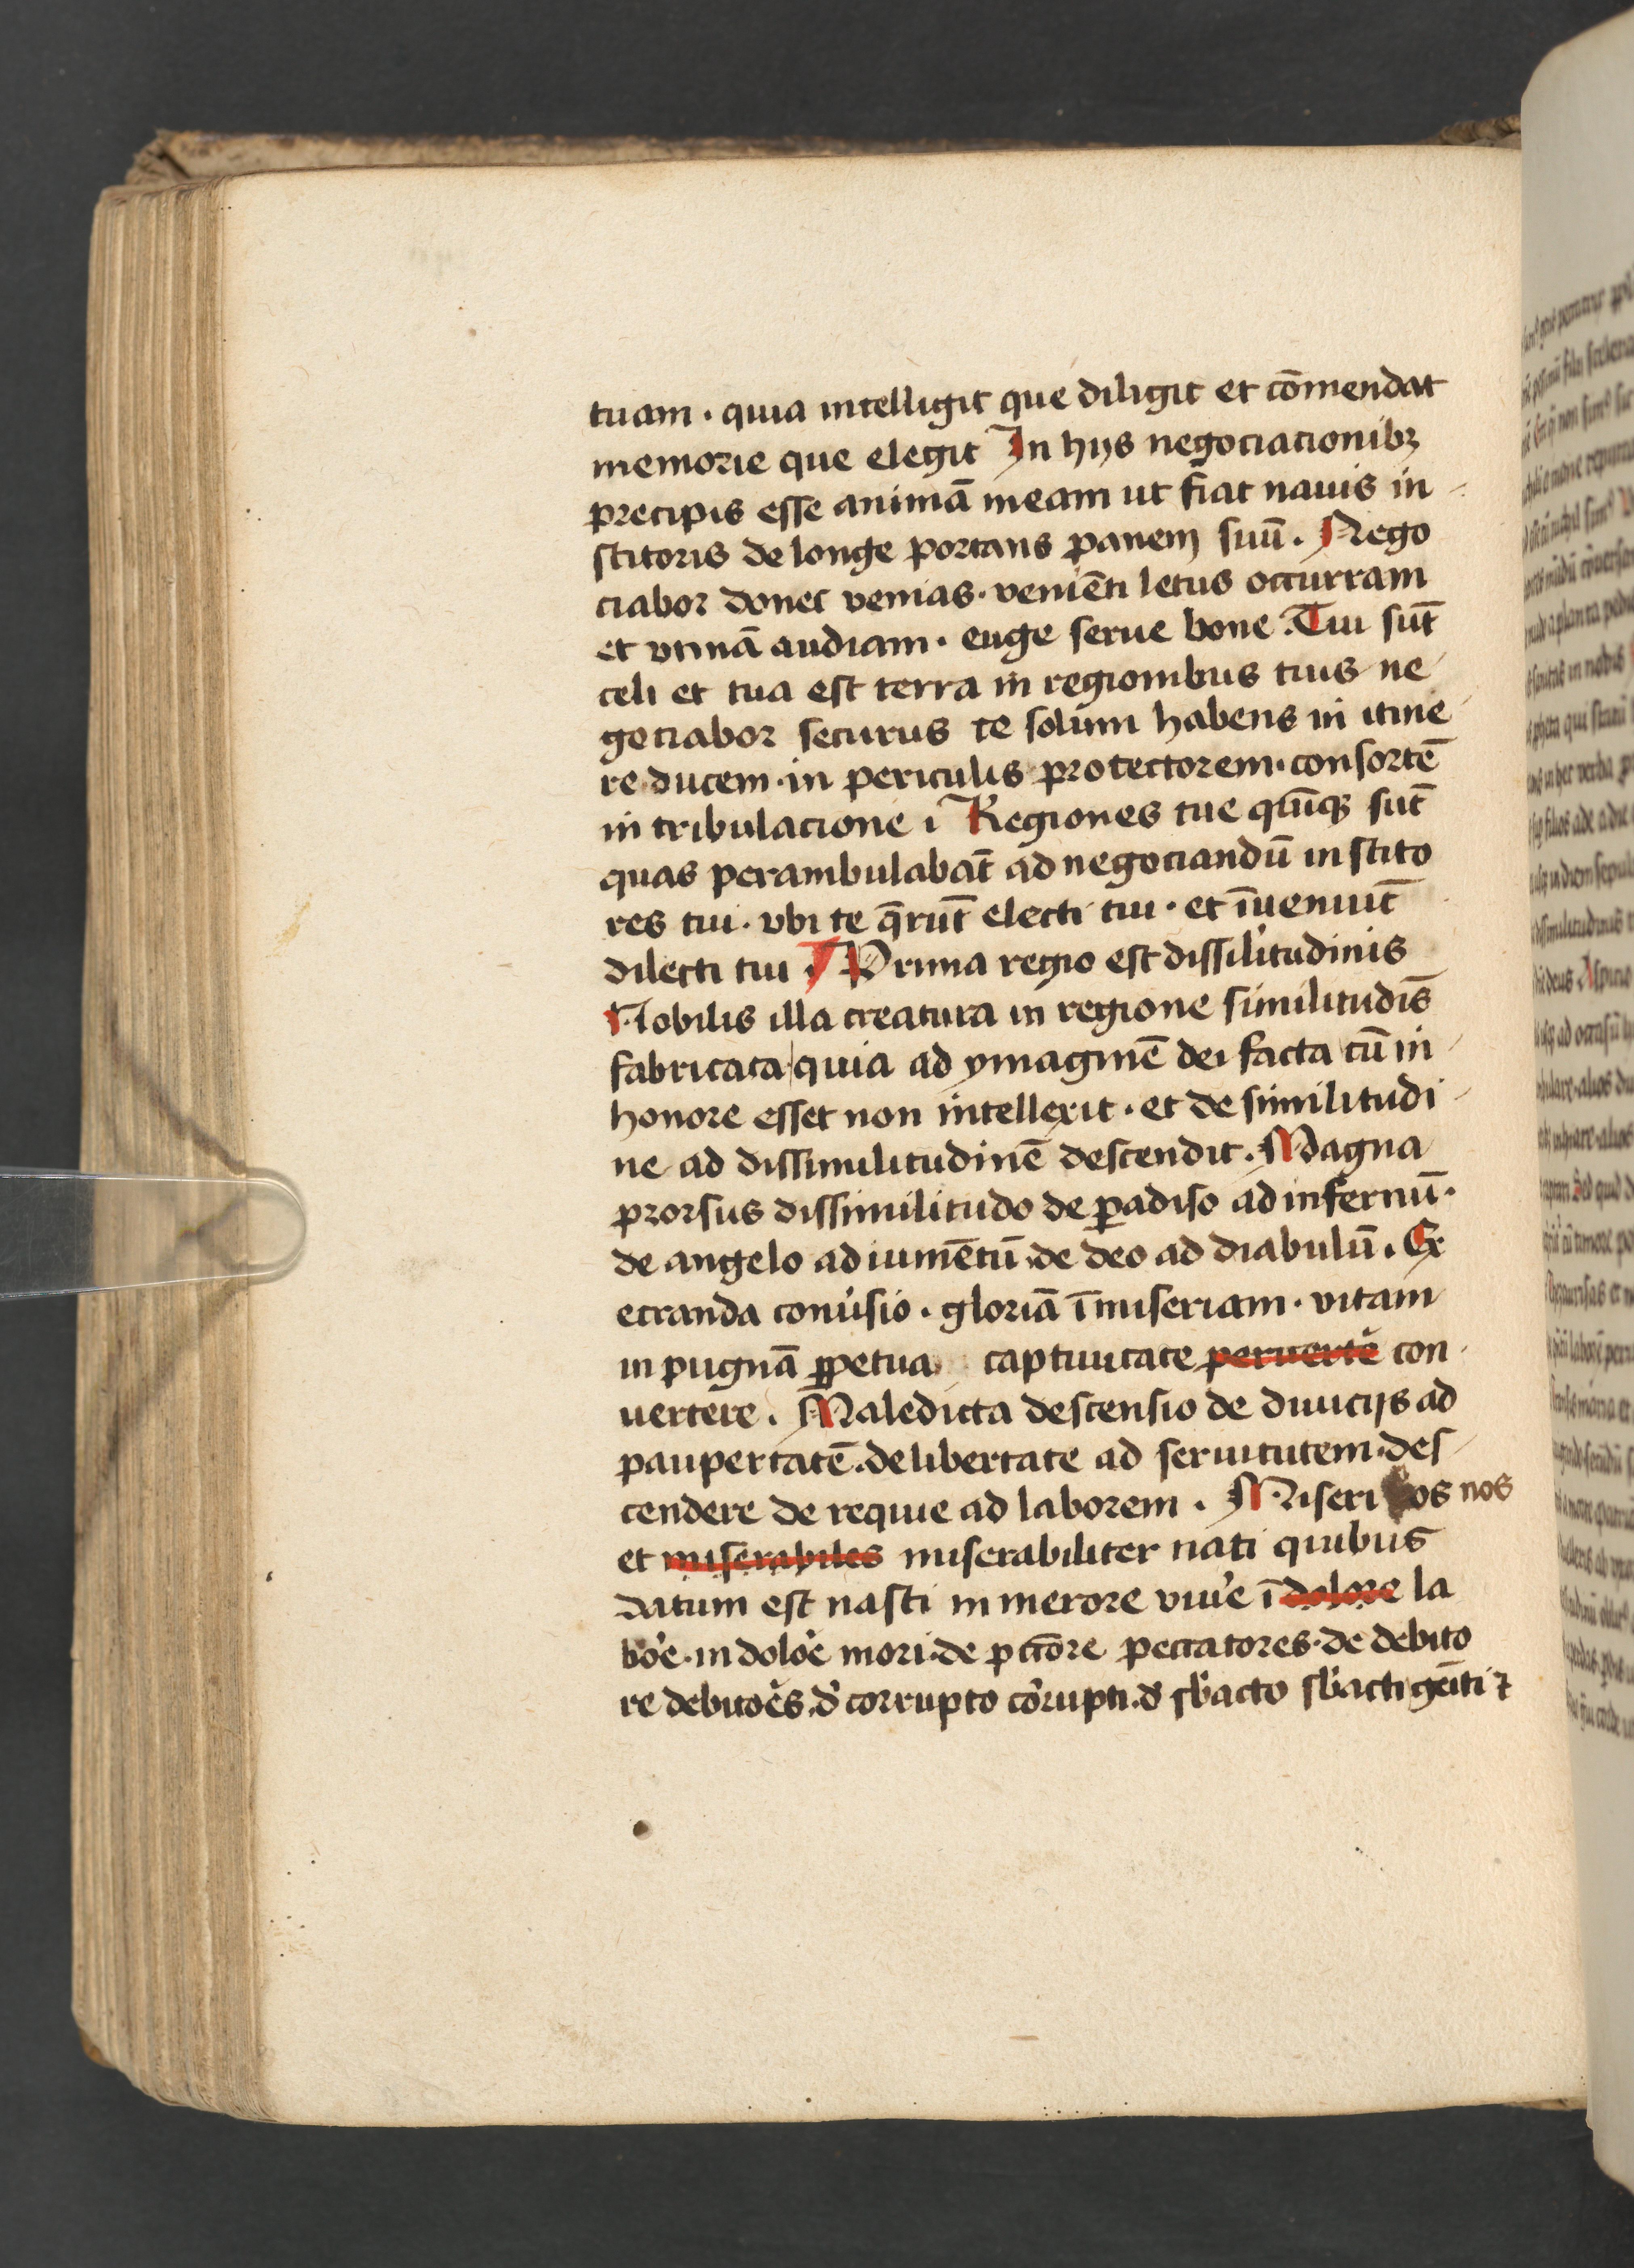 tuam · quia intelligit que diligit et cōmendat
memorie que elegit In hijs negociacionibꝫ
precipis esse animā meam ut fiat nauis in
stitoris de longe portans panem suū . Nego
ciabor donec venias · venienti letus occurram
et vtinā audiam · euge serue bone . Tui sūt
celi et tua est terra in regionibus tuis ne
gociabor securus te solum habens in itine
re ducem · in periculis protectorem · consortē
in tribulacione ı Regiones tue quīqꝫ sūt
quas perambulabāt ad negociandū instito
res tui · vbi te q̄rūt electi tui · et īueniūt
dilecti tui . ¶ Prima regio est dissil'itudinis
Nobilis illa creatura in regione similitudīs
fabricata quia ad ymaginē dei facta cū in
honore esset non intellexit · et de similitudi
ne ad dissimilitudinē descendit . Magna
prorsus dissimilitudo de ꝑadiso ad infernū ·
de angelo ad iumētū · de deo ad diabulū . Ex
ecranda conu'sio · gloriā ī miseriam · vitam
in pugnā ꝑpetua captiuitate peruerte' con
uertere . Maledicta descensio de diuicijs ad
paupertatē · de libertate ad seruitutem · des
cendere de requie ad laborem . Miseri os nos
et miserabiles miserabiliter nati quibus
datum est nasci in merore viue' ī dolore la
bo'e · in dolo'e mori · de pctōre peccatores · de debito
re debito'es · d' corrupto co'rupti · d' sb'acto sb'acti gēiti ⁊